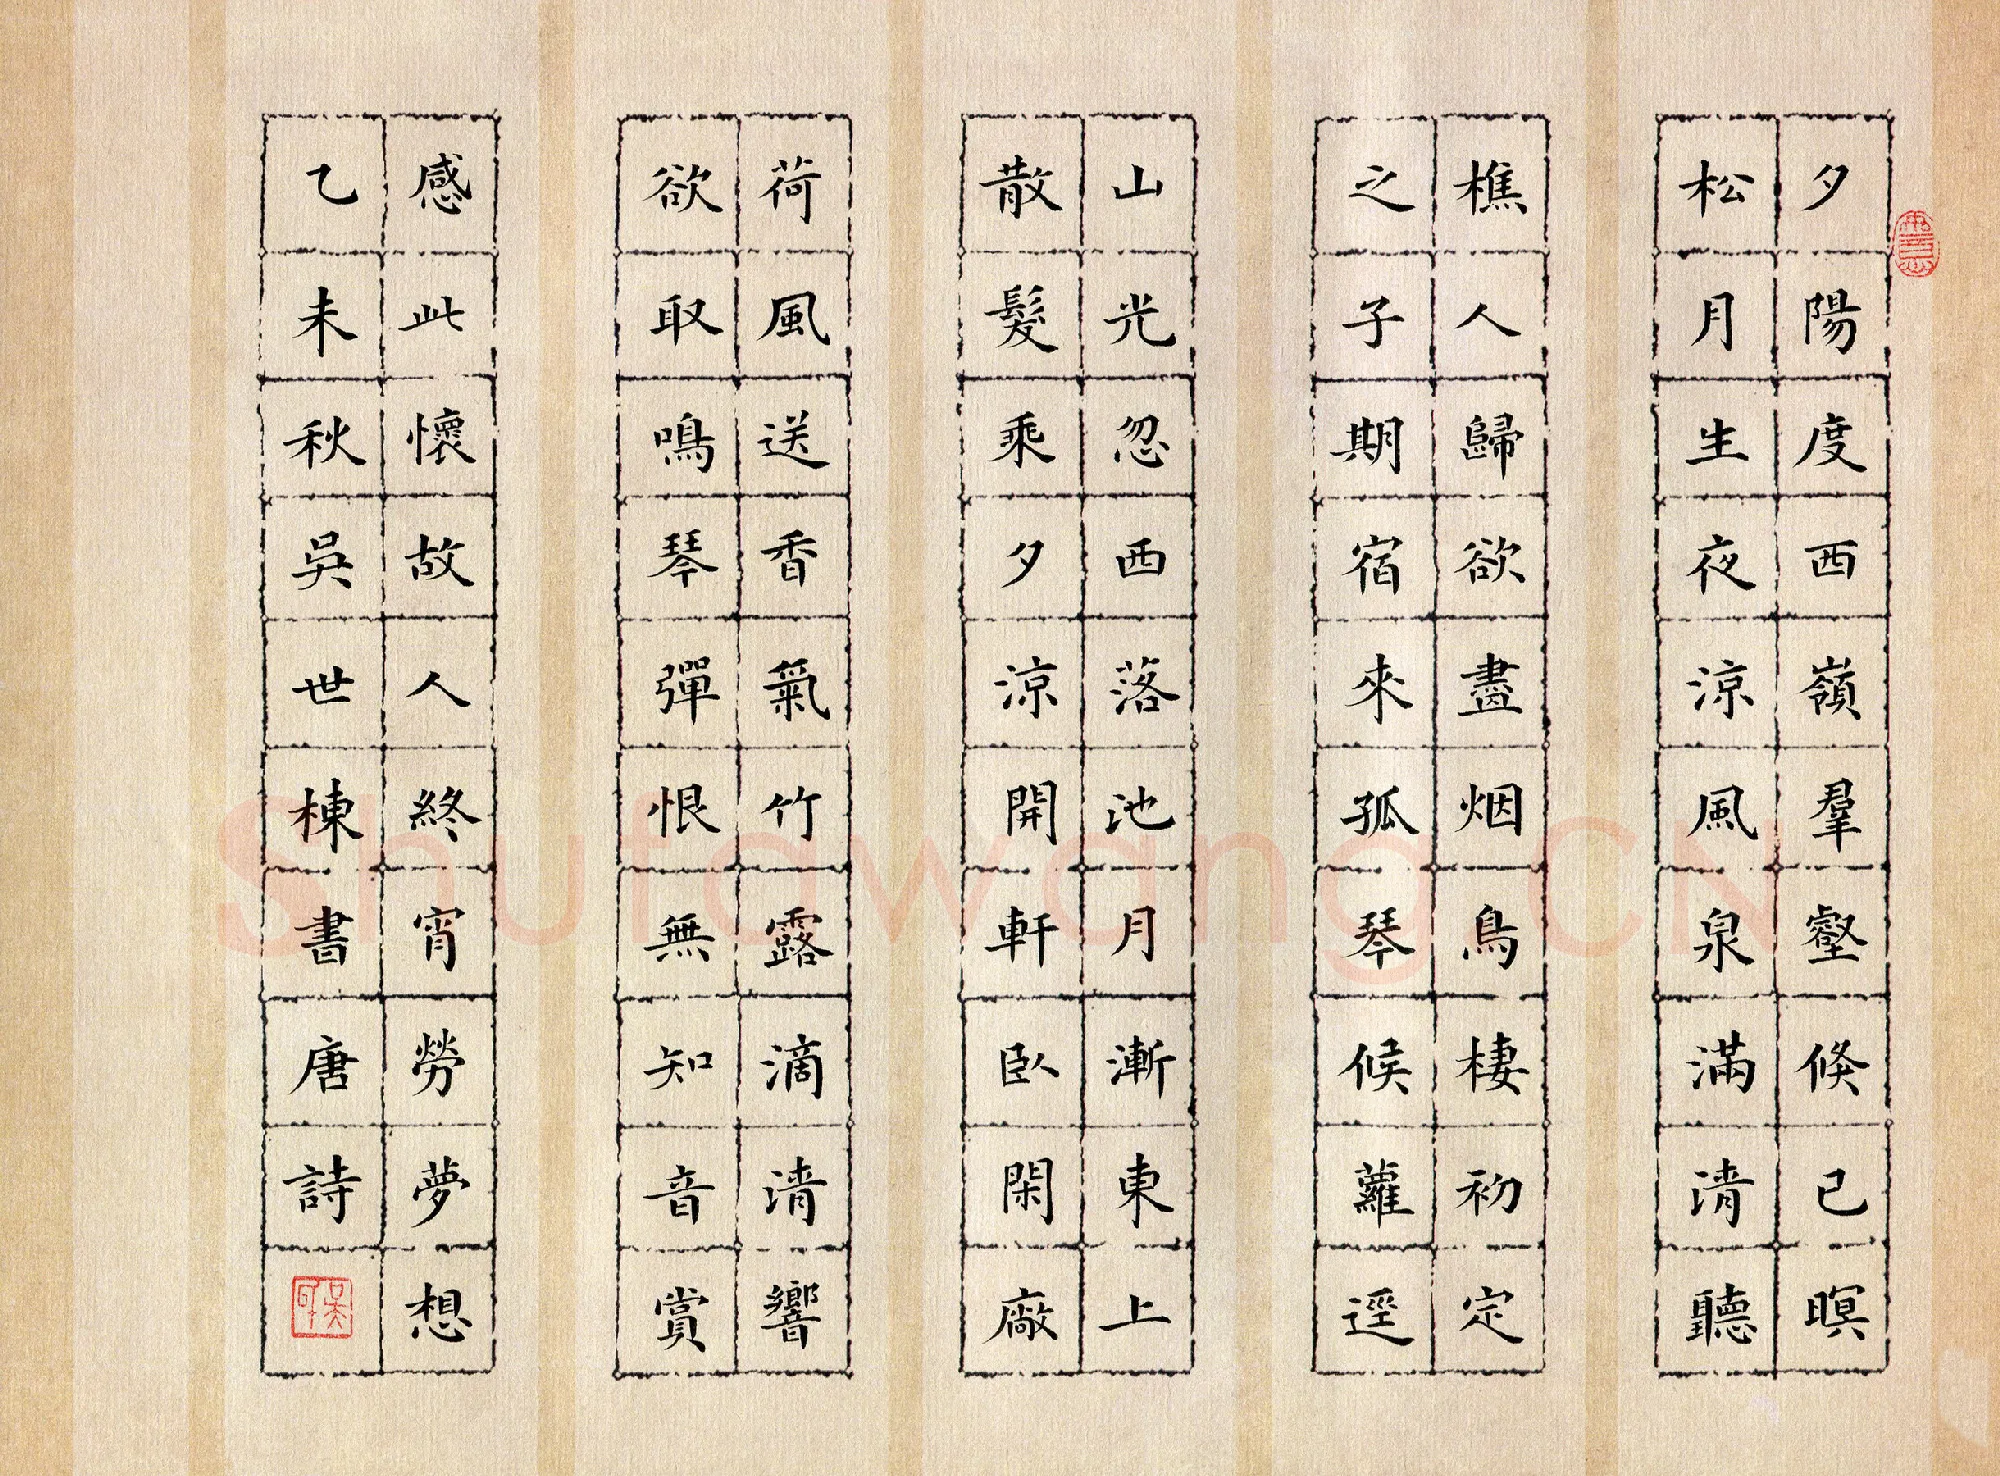 夕陽度西嶺羣壑倏已暝
松月生夜涼風泉滿清聽
樵人歸欲盡烟鳥棲初定
之子期宿來孤琴候蘿逕
山光忽西落池月漸東上
散髮乘夕涼開軒臥閑廠
荷風送香氣竹露滴清響
欲取鳴琴彈恨無知音賞
感此懷故人終宵勞夢想
乙未秋吳世棟書唐詩
Shufawang.CN